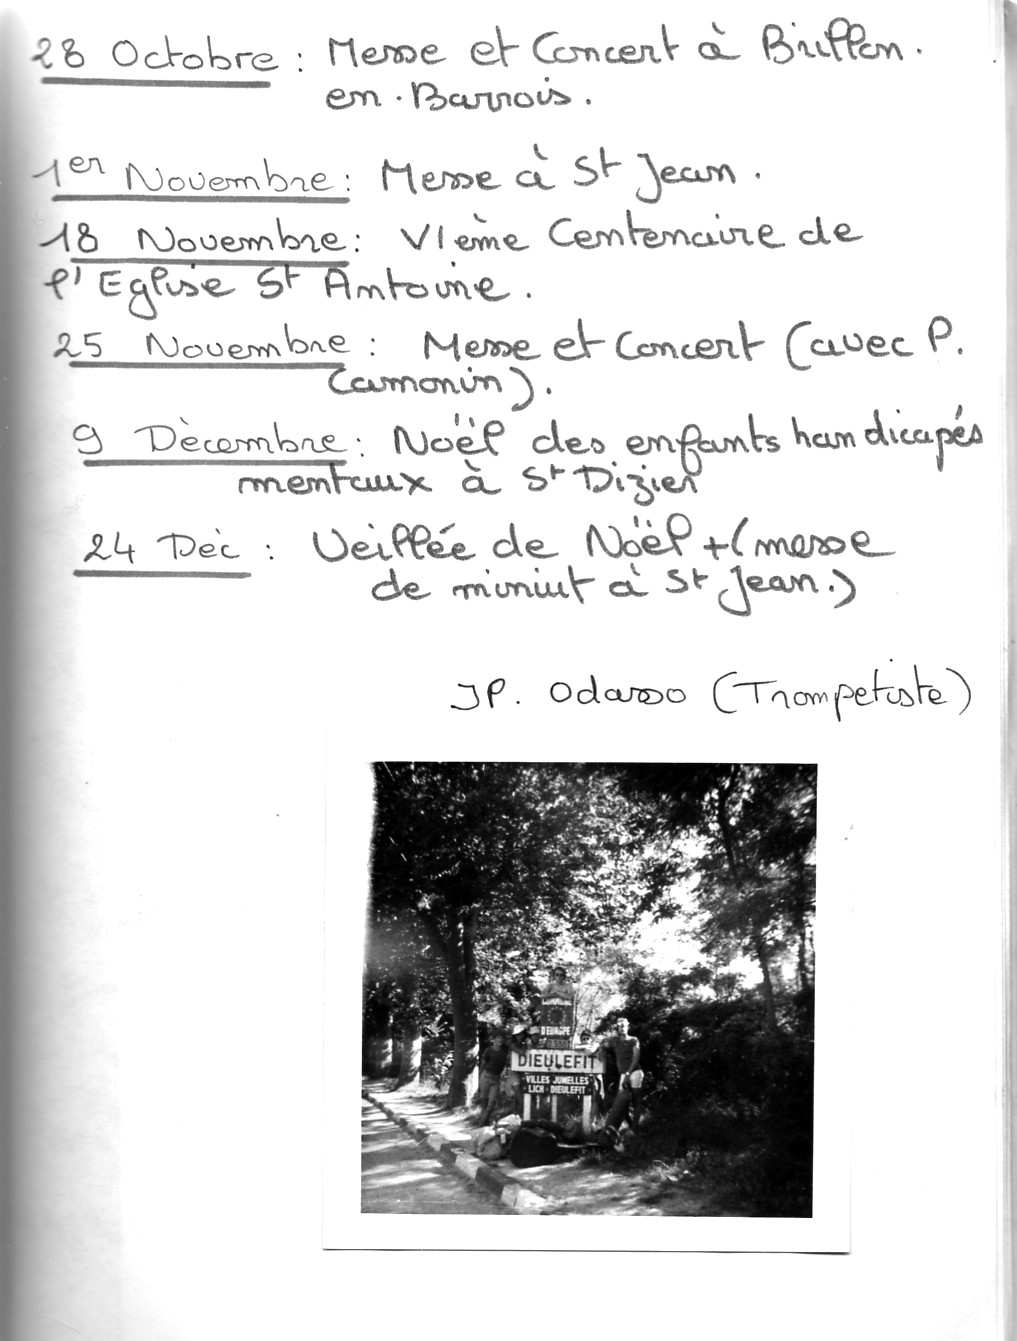 28 Octobre : Messe et Concert à Brillon.
en.Barrois.
1er Novembre : Messe à St Jean.
18 Novembre : VIème Centenaire de
l'Eglise St Antoine.
25 Novembre : Messe et Concert (avec P.
Camonin).
9 Dècembre : Noël des enfants handicapés
mentaux à St Dizier
24 Dèc : Veillée de Noël + (messe
de miniut à St Jean.)
JP. Odasso (Trompetiste)
COMMUNE
D'EUROPE
DIEULEFIT
VILLES JUMELLES
LICH - DIEULEFIT